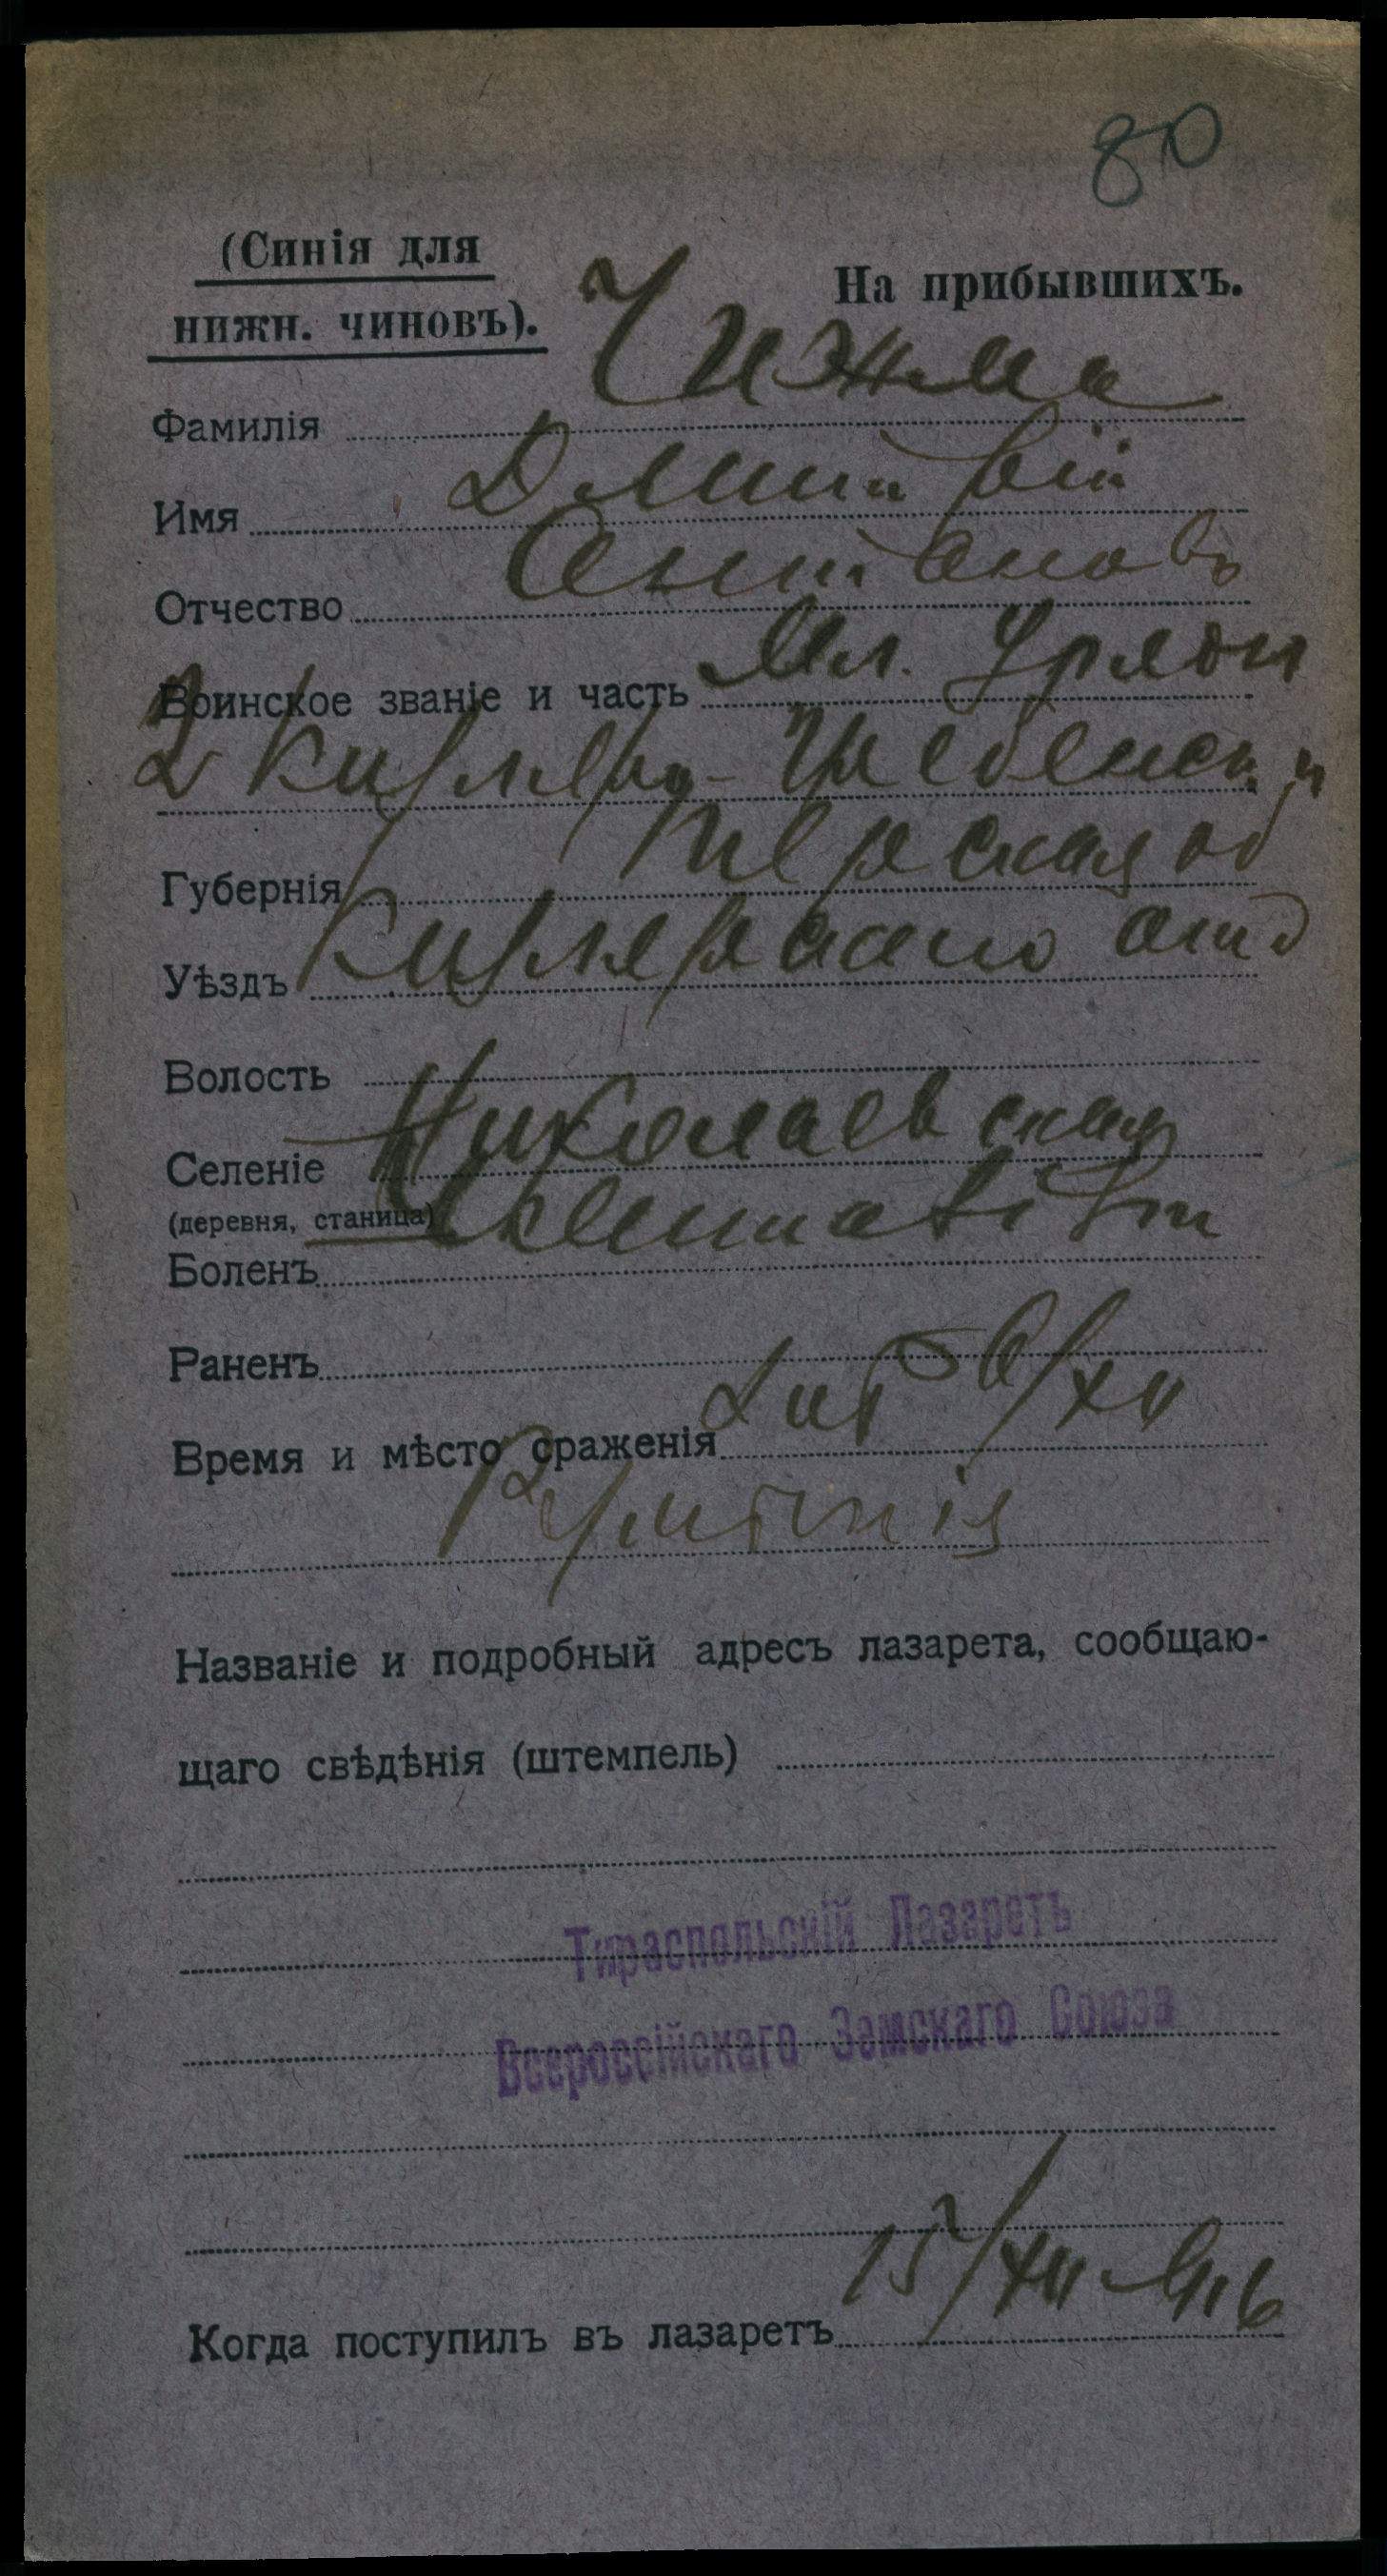 80
(Синія для
нижн. чиновъ).
На прибывшихъ.
Чижма
Фамилія
Имя Дмитрій
Отчество Антоновъ
Воинское званіе и часть Мл. Урядн
2 Кизляро-Гребенск. п
Губернія Терская об
Уѣздъ Кизлярскаго отд
Волость
Селеніе Николаевская
(деревня, станица)
Боленъ
Раненъ
Время и мѣсто сраженія 6/XII
Румынія
Названіе и подробный адресъ лазарета, сообщаю-
щаго свѣдѣнія (штемпель)
Тираспольскій Лазаретъ
Всероссійскаго Земскаго Союза
Когда поступилъ въ лазаретъ 15/XII 1916